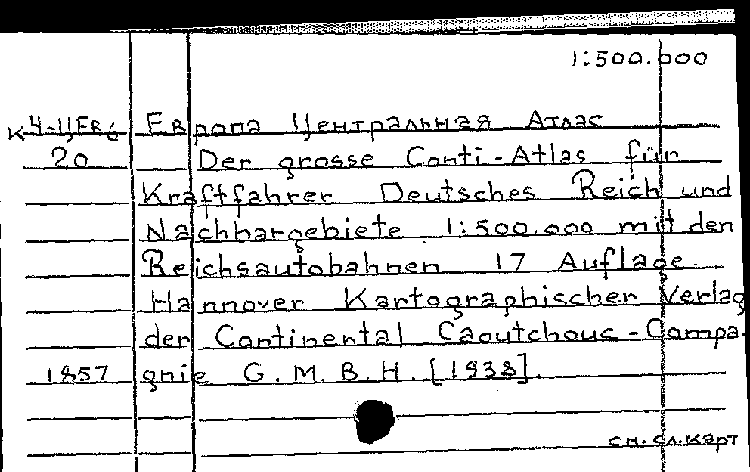 1:500.000
К 4-ЦЕВ6 Европа Центральная Атлас
20 Der grosse Conti-Atlas für
Kraftfahrer Deutsches Reich und
Nachbargebiete 1:500.000 mit den
Reichsautobahnen 17 Auflage
Hannover Kartographischer Verlag
der Continental Caoutchouc-Compa-
1857 gnie G.M.B.H. [1938].
см. сл. карт